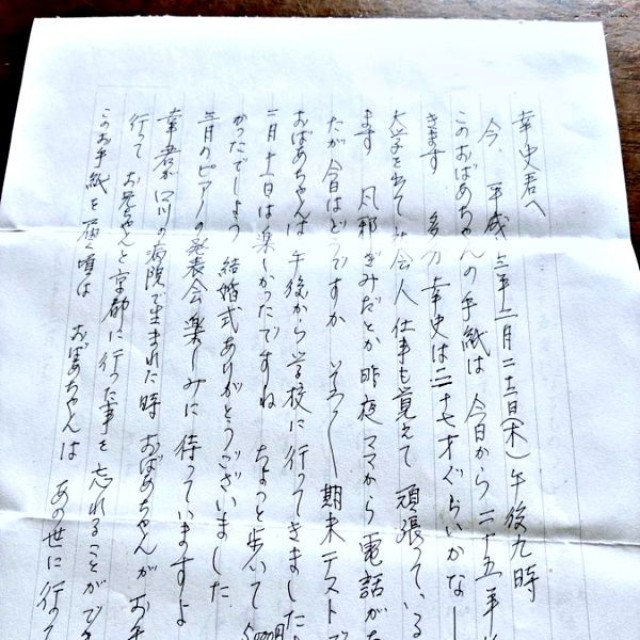 幸史君へ
今、平成 年 月二十二日(木)午後九時
このおばあちゃんの手紙は 今日から二十五年
きます 多分幸史は二十七才ぐらいかなー
大学を出て社会人 仕事も覚えて 頑張っている
ます 風邪ぎみだとか昨夜ママから電話が
たが今日はどうですか そろそろ期末テストで
おばあちゃんは 午後から学校に行ってきました
二月十一日は楽しかったですね ちょっと歩いて
かったでしょう 結婚式ありがとうございました
三月のピアノの発表会楽しみに待っていますよ
幸君が の病院で生まれた時 おばあちゃんが お
行って お兄ちゃんと京都に行った事を 忘れることができ
このお手紙を 届く頃は おばあちゃんは あの世に行って